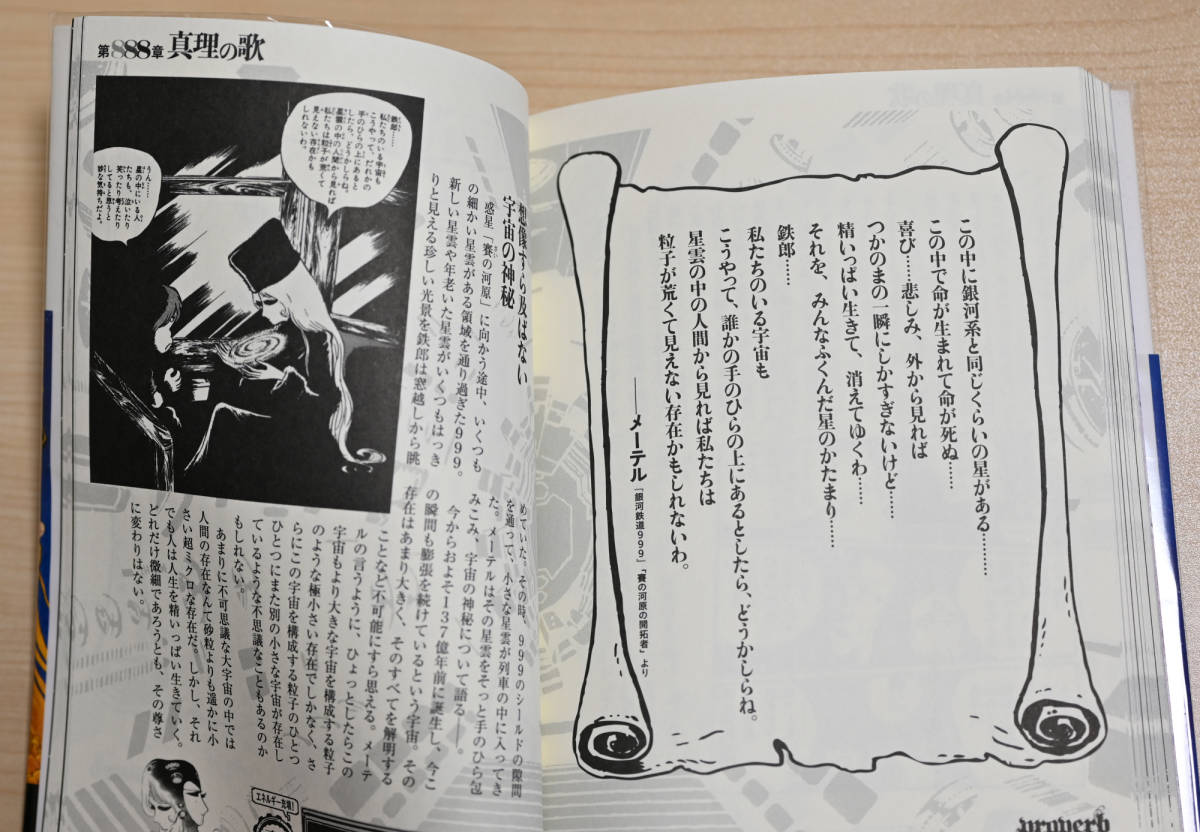 この中に銀河系と同じくらいの星がある……
この中で命が生まれて命が死ぬ……
喜び……悲しみ、外から見れば
つかのまの一瞬にしかすぎないけど……
精いっぱい生きて、消えてゆくわ……
それを、みんなふくんだ星のかたまり……
鉄郎……
私たちのいる宇宙も
こうやって、誰かの手のひらの上にあるとしたら、どうかしらね。
星雲の中の人間から見れば私たちは
粒子が荒くて見えない存在かもしれないわ。
——メーテル「銀河鉄道999」「賽の河原の開拓者」より
proverb
第888章 真理の歌
鉄郎……
私たちのいる宇宙も
こうやって、だれかの
手のひらの上にあると
したら、どうかしらね。
星雲の中の人間から見れば
私たちは粒子が荒くて
見えない存在かも
しれないわ。
うん……
星の中にいる人
たちも、泣いたり
笑ったり考えたり
してると思うと
妙な気持ちだよ。
想像すら及ばない
宇宙の神秘
惑星「賽の河原」に向かう途中、いくつも
の細かい星雲がある領域を通り過ぎた999。
新しい星雲や年老いた星雲がいくつもはっき
りと見える珍しい光景を鉄郎は窓越しから眺
めていた。その時、999のシールドの隙間
を通って、小さな星雲が列車の中に入ってき
た。メーテルはその星雲をそっと手のひら包
みこみ、宇宙の神秘について語る——。
今からおよそ137億年前に誕生し、今こ
の瞬間も膨張を続けているという宇宙。その
存在はあまり大きく、そのすべてを解明する
ことなど不可能にすら思える。メーテ
ルの言うように、ひょっとしたらこの
宇宙もより大きな宇宙を構成する粒子
のような極小さい存在でしかなく、さ
らにこの宇宙を構成する粒子のひとつ
ひとつにまた別の小さな宇宙が存在し
ているような不思議なこともあるのか
もしれない。
あまりに不可思議な大宇宙の中では
人間の存在なんて砂粒よりも遥かに小
さい超ミクロな存在だ。しかし、それ
でも人は人生を精いっぱい生きていく。
どれだけ微細であろうとも、その尊さ
に変わりはない。
エネルギー充填!